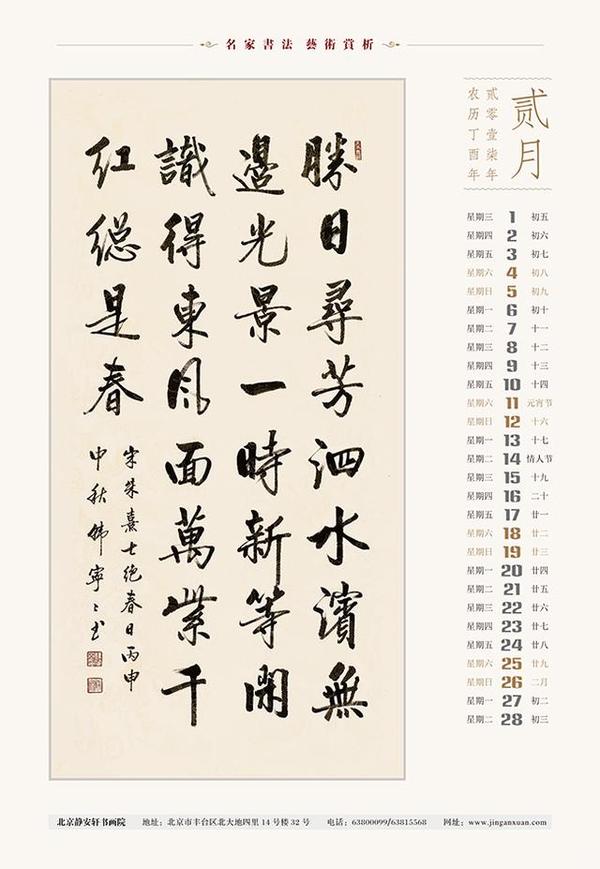 名家書法 藝術賞析
勝日尋芳泗水濱無
邊光景一時新等閑
識得東風面萬紫千
紅總是春
宋朱熹七绝春日丙申
中秋韩寧々书
贰月
贰零壹柒年
农历丁酉年
星期三 1 初五
星期四 2 初六
星期五 3 初七
星期六 4 初八
星期日 5 初九
星期一 6 初十
星期二 7 十一
星期三 8 十二
星期四 9 十三
星期五 10 十四
星期六 11 元宵节
星期日 12 十六
星期一 13 十七
星期二 14 情人节
星期三 15 十九
星期四 16 二十
星期五 17 廿一
星期六 18 廿二
星期日 19 廿三
星期一 20 廿四
星期二 21 廿五
星期三 22 廿六
星期四 23 廿七
星期五 24 廿八
星期六 25 廿九
星期日 26 二月
星期一 27 初二
星期二 28 初三
北京静安轩书画院 地址：北京市丰台区北大地四里 14 号楼 32 号 电话：63800099/63815568 网址：www.jinganxuan.com